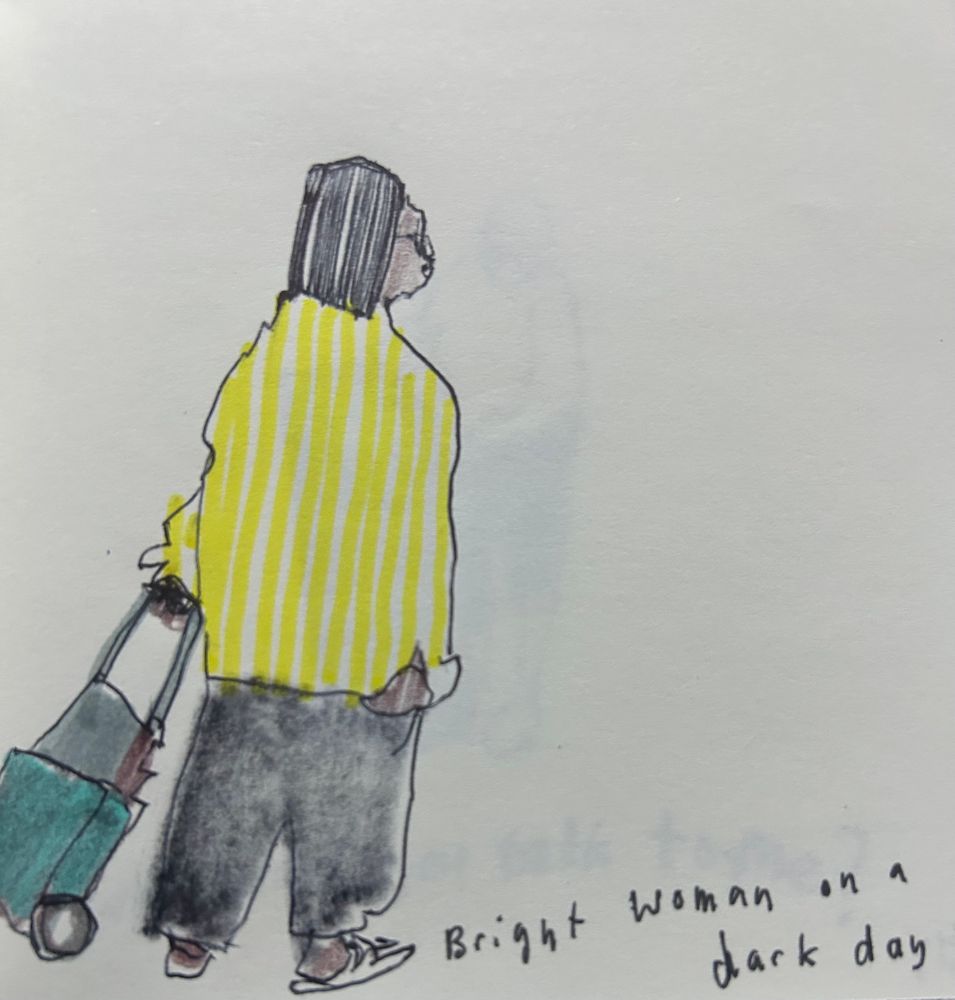 Bright woman on a
dark day